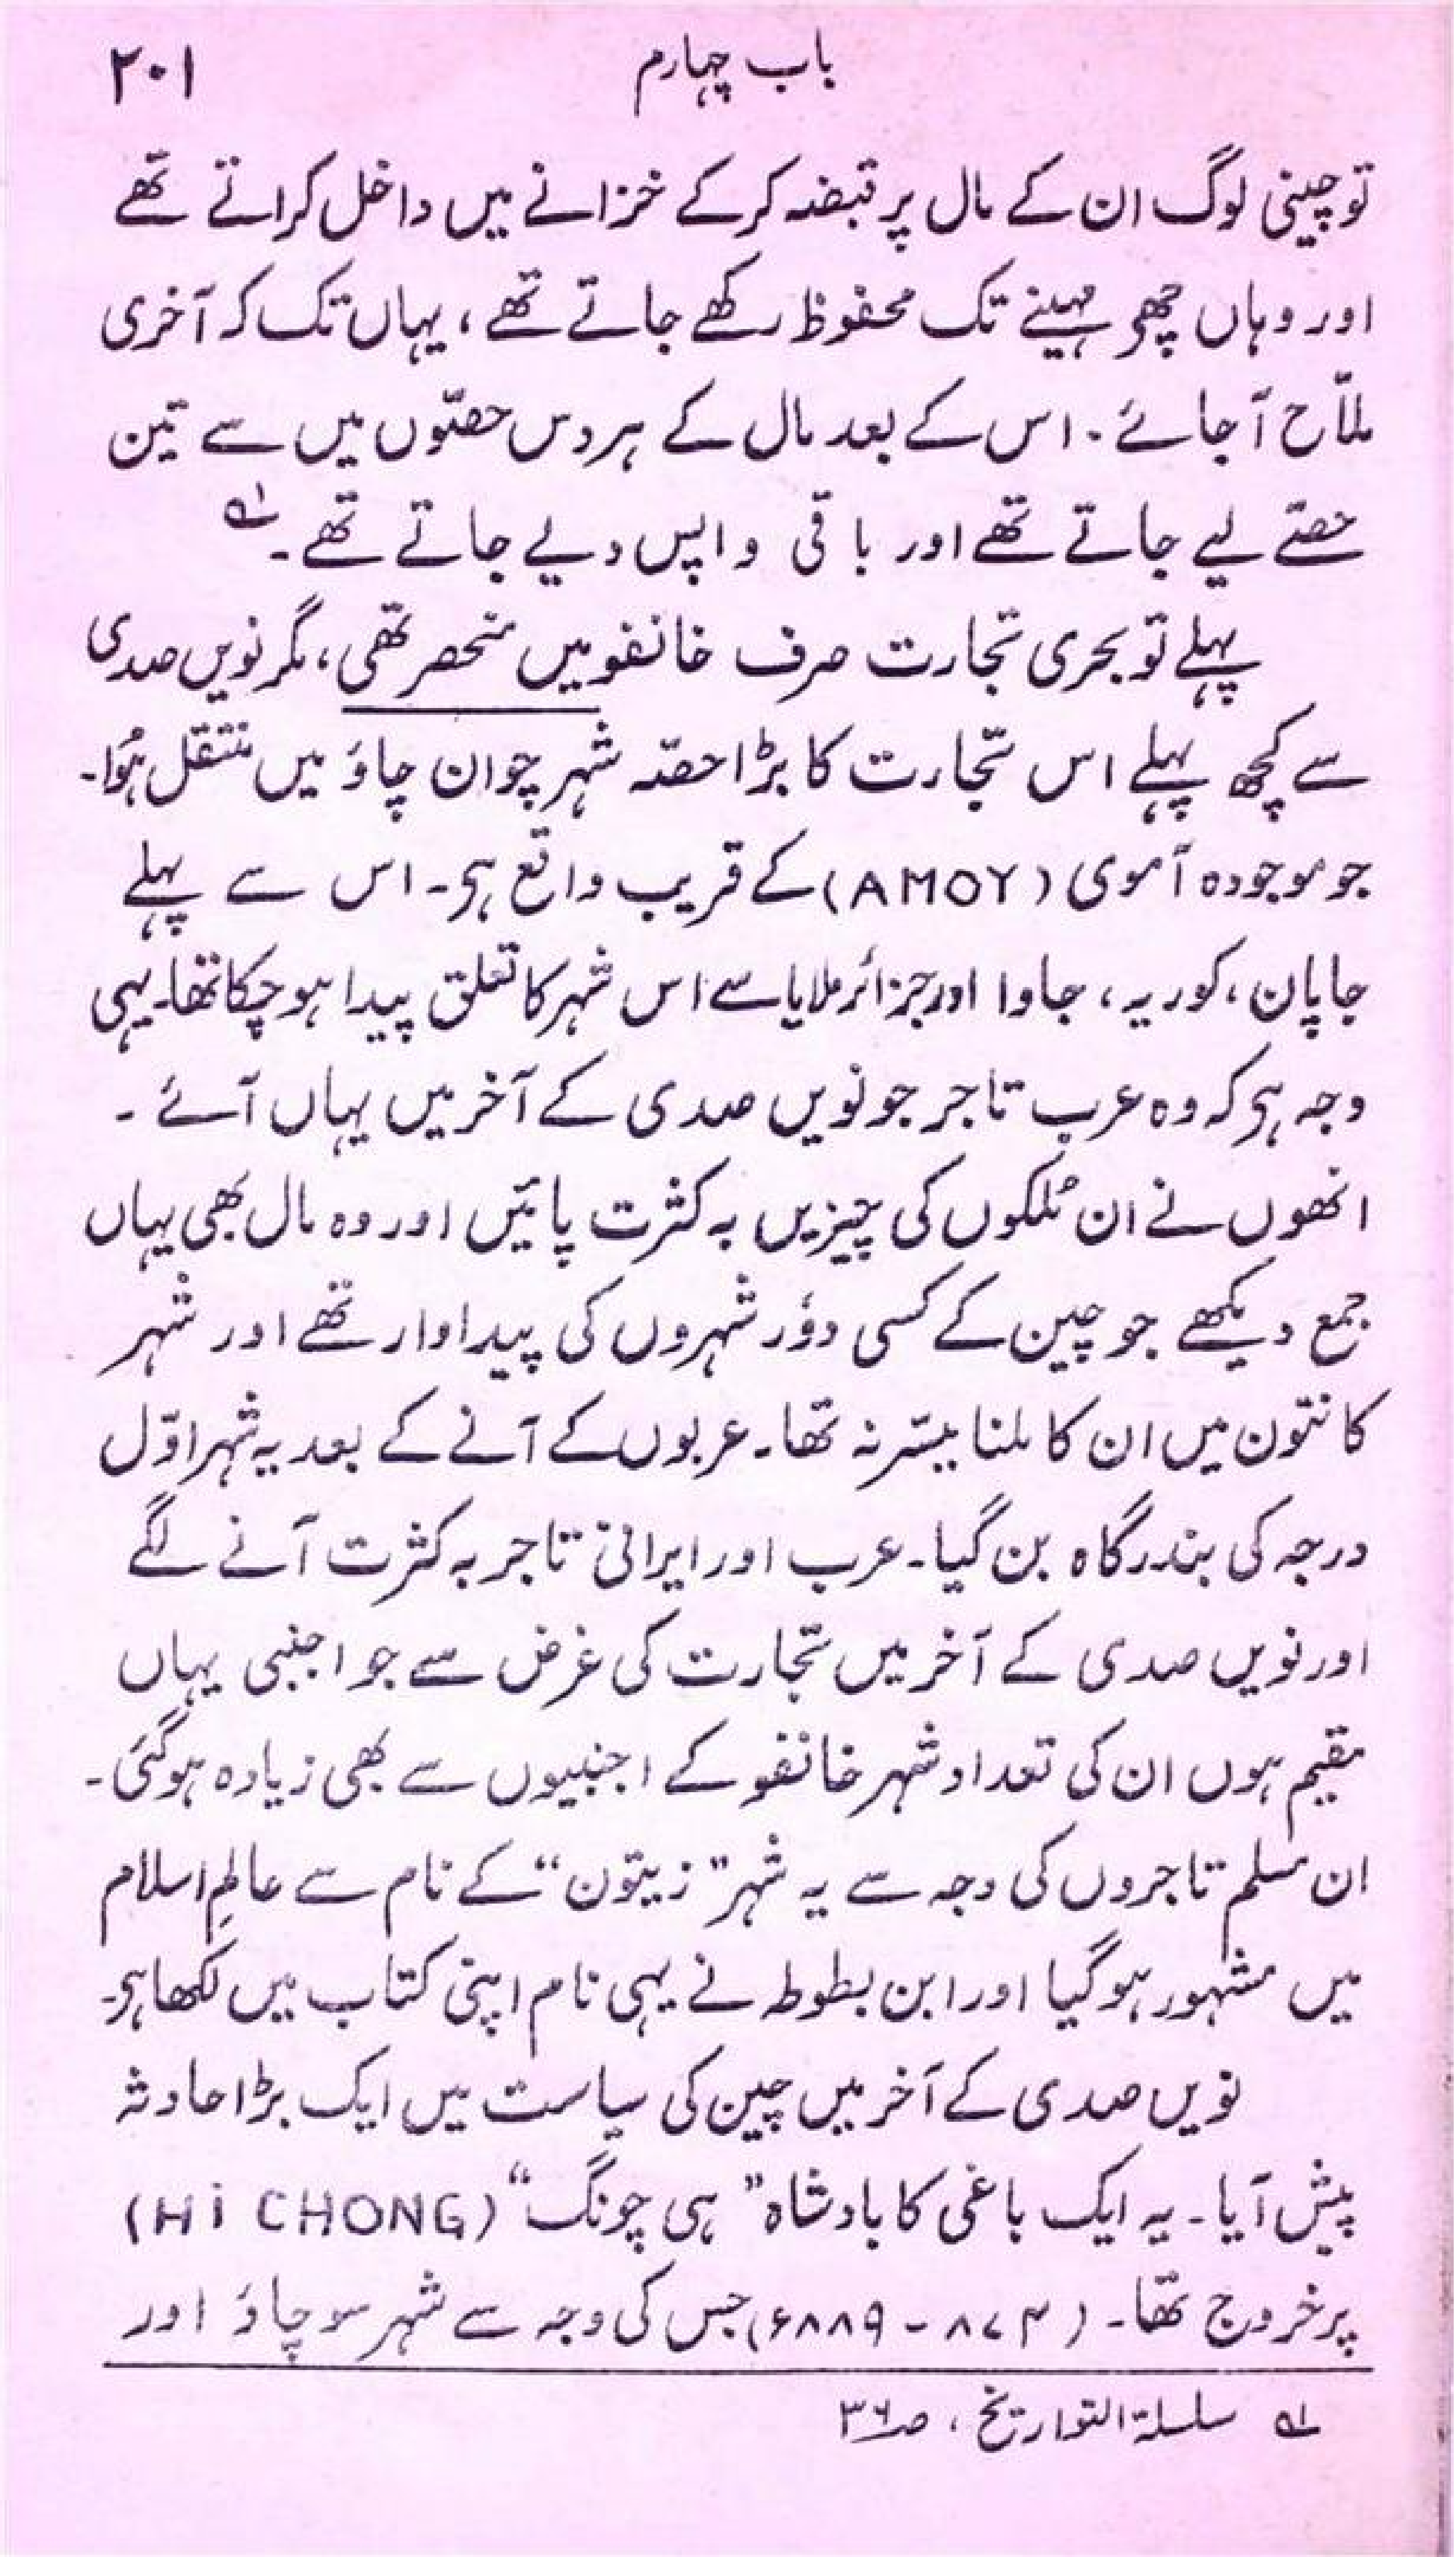 باب چہارم
۲۰۱
تو چینی لوگ ان کے مال پر قبضہ کرکے خزانے میں داخل کراتے تھے
اور وہاں چھو مہینے تک محفوظ رکھے جاتے تھے، یہاں تک کہ آخری
ملّاح آجائے۔ اس کے بعد مال کے ہر دس حصّوں میں سے تین
حصّے لیے جاتے تھے اور باقی واپس دیے جاتے تھے۔ لہ
پہلے تو بحری تجارت صرف خانفو میں منحصر تھی، مگر نویں صدی
سے کچھ پہلے اس تجارت کا بڑا حصّہ شہر چوان چاؤ میں منتقل ہُوا۔
جو موجودہ آموی (AMOY) کے قریب واقع ہی۔ اس سے پہلے
جاپان، کوریہ، جاوا اور جزائر ملایا سے اس شہر کا تعلق پیدا ہوچکا تھا۔ یہی
وجہ ہی کہ وہ عرب تاجر جو نویں صدی کے آخر میں یہاں آئے ۔
انھوں نے ان مُلکوں کی چیزیں بہ کثرت پائیں اور وہ مال بھی یہاں
جمع دیکھے جو چین کے کسی دؤر شہروں کی پیداوار تھے اور شہر
کانتون میں ان کا ملنا میسّر نہ تھا۔ عربوں کے آنے کے بعد یہ شہر اوّل
درجہ کی بندرگاہ بن گیا۔ عرب اور ایرانی تاجر بہ کثرت آنے لگے
اور نویں صدی کے آخر میں تجارت کی غرض سے جو اجنبی یہاں
مقیم ہوں ان کی تعداد شہر خانفو کے اجنبیوں سے بھی زیادہ ہوگئی۔
ان مسلم تاجروں کی وجہ سے یہ شہر "زیتون" کے نام سے عالمِ اسلام
میں مشہور ہوگیا اور ابن بطوطہ نے یہی نام اپنی کتاب میں لکھا ہی۔
نویں صدی کے آخر میں چین کی سیاست میں ایک بڑا حادثہ
پیش آیا۔ یہ ایک باغی کا بادشاہ "ہی چونگ" (Hi CHONG)
پر خروج تھا۔ (۸۷۴ - ۸۸۹ء) جس کی وجہ سے شہر سوچاؤ اور
لہ سلسلۃ التواریخ، صـ۳۶